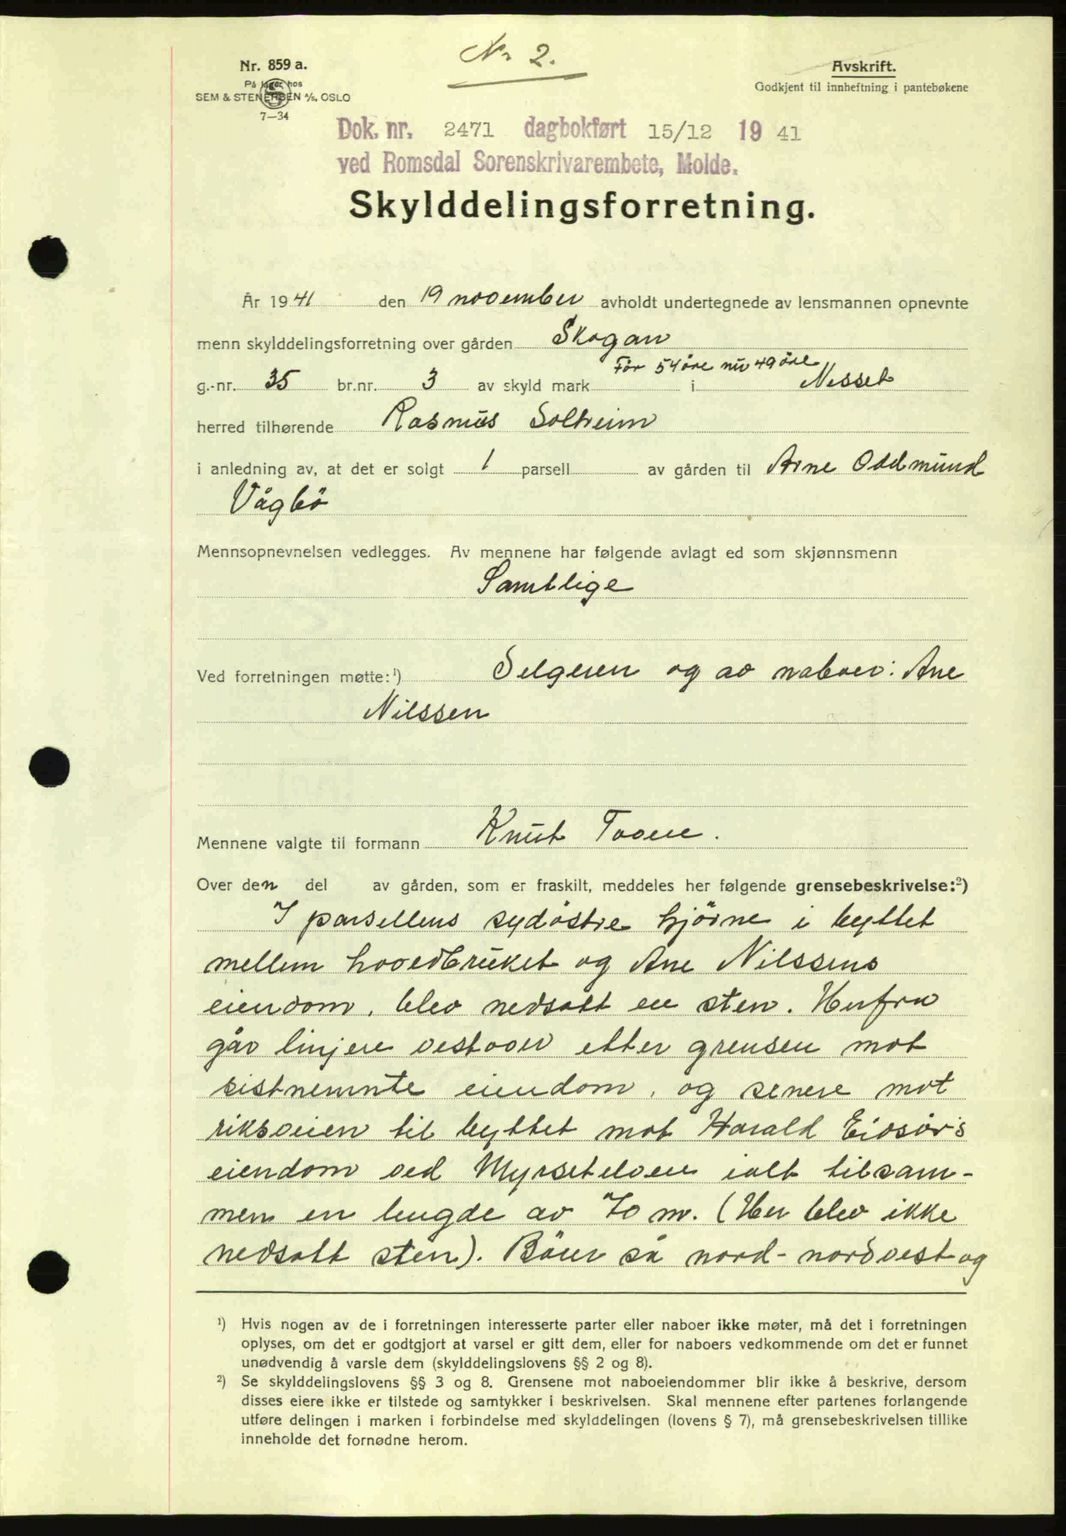 Nr 2.
Nr. 859 a.
På lager hos
SEM & STENERSEN A/S, OSLO
7—34
Avskrift.
Godkjent til innheftning i pantebøkene
Dok. nr. 2471 dagbokført 15/12 1941
ved Romsdal Sorenskrivarembete, Molde.
Skylddelingsforretning.
År 1941 den 19 november avholdt undertegnede av lensmannen opnevnte
menn skylddelingsforretning over gården Skogan
g.-nr. 35 br.nr. 3 av skyld mark Før 54 øre nu 49 øre i Nesset
herred tilhørende Rasmus Solheim
i anledning av, at det er solgt 1 parsell av gården til Arne Oddmund
Vågbö
Mennsopnevnelsen vedlegges. Av mennene har følgende avlagt ed som skjønnsmenn
Samtlige
Ved forretningen møtte:¹) Selgeren og av naboer: Ane
Nilssen
Mennene valgte til formann Knut Toven.
Over den del av gården, som er fraskilt, meddeles her følgende grensebeskrivelse:²)
I parsellens sydöstre hjörne i byttet
mellem hovedbruket og Ane Nilssens
eiendom, blev nedsatt en sten. Herfra
går linjen vestover etter grensen mot
sistnemnte eiendom, og senere mot
riksveien til byttet mot Harald Eidsør's
eiendom ved Myrsetelven ialt tilsam-
men en lengde av 70 m. (Her blev ikke
nedsatt sten). Böier så nord-nordvest og
¹) Hvis nogen av de i forretningen interesserte parter eller naboer ikke møter, må det i forretningen
oplyses, om det er godtgjort at varsel er gitt dem, eller for naboers vedkommende om det er funnet
unødvendig å varsle dem (skylddelingslovens §§ 2 og 8).
²) Se skylddelingslovens §§ 3 og 8. Grensene mot naboeiendommer blir ikke å beskrive, dersom
disses eiere ikke er tilstede og samtykker i beskrivelsen. Skal mennene efter partenes forlangende
utføre delingen i marken i forbindelse med skylddelingen (lovens § 7), må grensebeskrivelsen tillike
inneholde det fornødne herom.